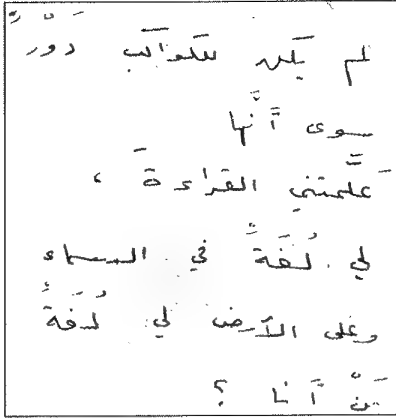 لم يَكن للكواكب دَوْرٌ
سوى أنَّها
عَلَّمتني القراءةَ ،
لي لُغَةٌ في السماء
وعلى الأرض لي لُغَةٌ
مَنْ أنا ؟